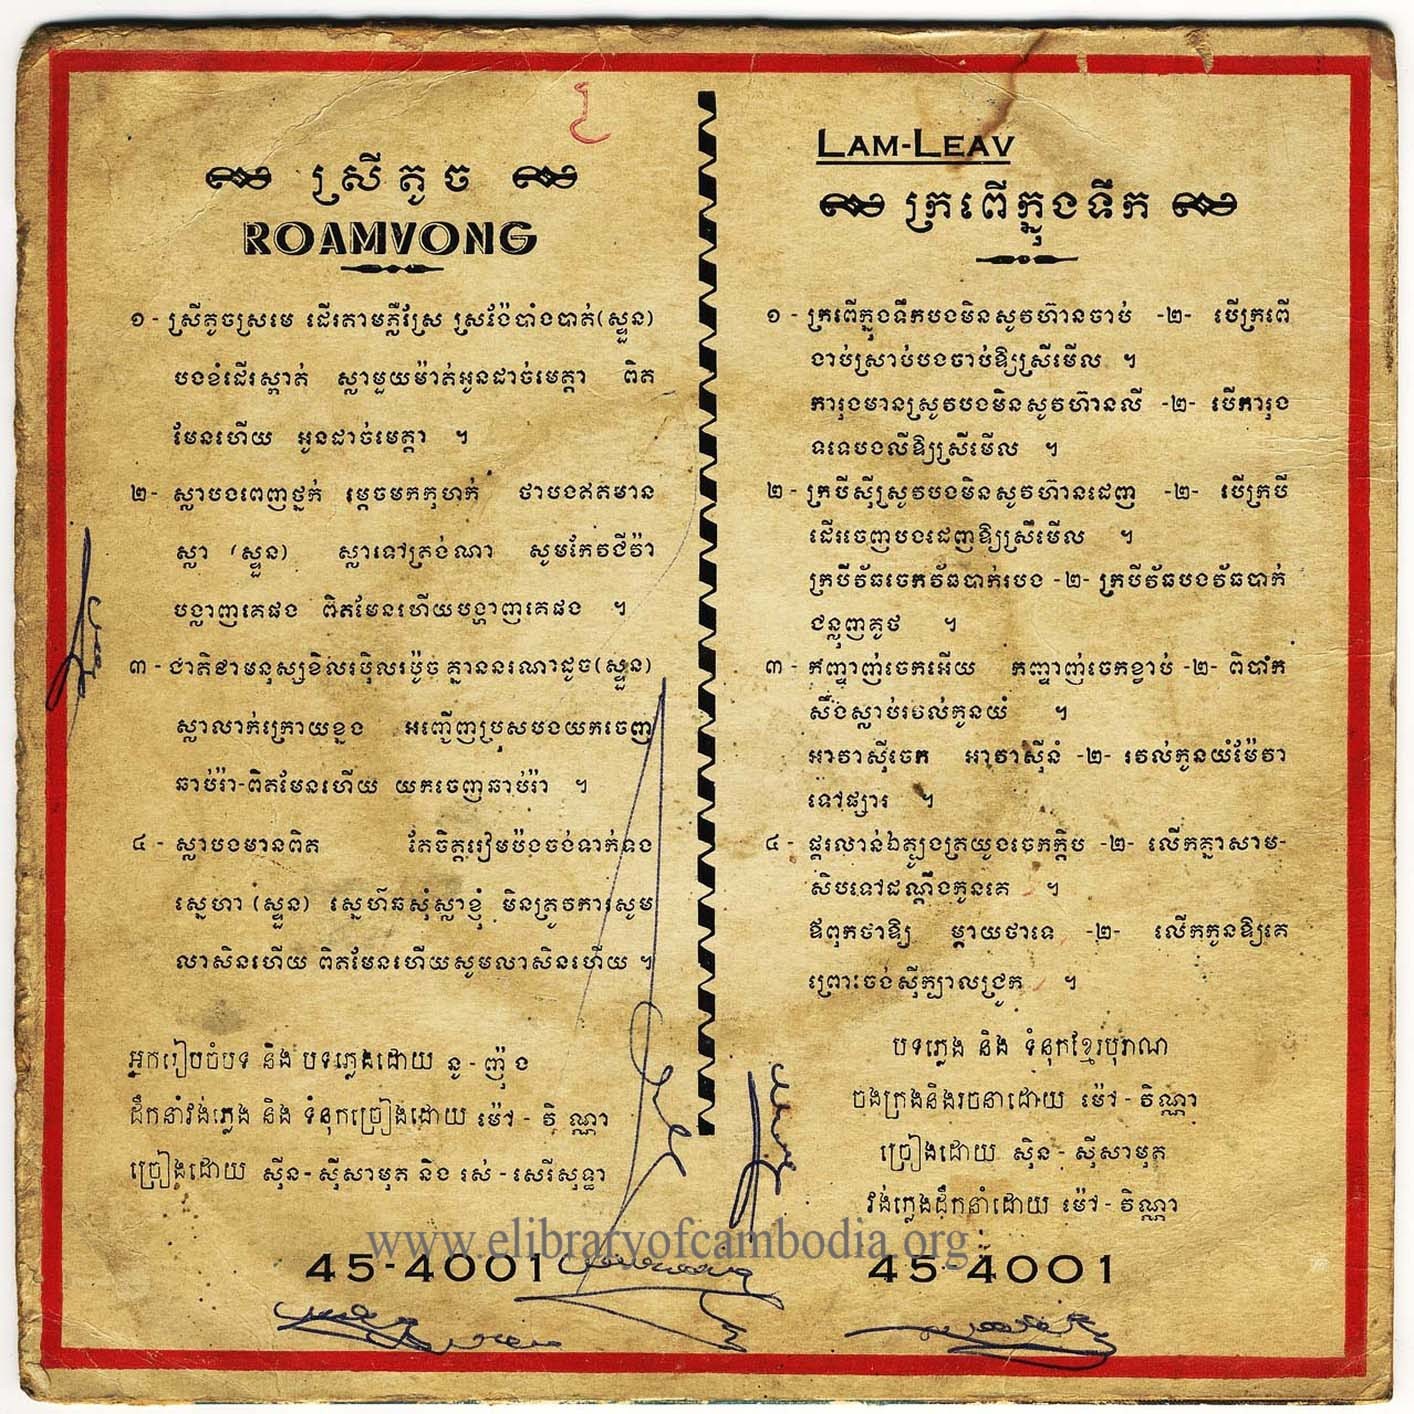 ស្រីតូច
ROAMVONG
១ - ស្រីតូចស្រមេ ដើរតាមភ្លឺស្រែ ស្រងែបាំងបាត់(ស្ទួន)
បងខំដើរស្កាត់ ស្លាមួយម៉ាត់អូនដាច់មេត្តា ពិត
មែនហើយ អូនដាច់មេត្តា ។
២- ស្លាបងពេញថ្នក់ ម្តេចមកកុហក់ ថាបងឥតមាន
ស្លា (ស្ទួន) ស្លាទៅត្រង់ណា សូមកែវជីវ៉ា
បង្ហាញគេផង ពិតមែនហើយបង្ហាញគេផង ។
៣ - ជាតិថាមនុស្សខិលរប៉ិលរប៉ូច គ្មាននរណាដូច(ស្ទួន)
ស្លាលាក់ក្រោយខ្នង អញ្ជើញប្រុសបងយកចេញ
ឆាប់រ៉ា-ពិតមែនហើយ យកចេញឆាប់រ៉ា ។
៤ - ស្លាបងមានពិត តែចិត្តរៀមប៉ងចង់ទាក់ទង
ស្នេហា (ស្ទួន) ស្នេហ៍ឆសុំស្លាខ្ញុំ មិនត្រូវការសូម
លាសិនហើយ ពិតមែនហើយសូមលាសិនហើយ ។
អ្នករៀបចំបទ និង បទភ្លេងដោយ នូ - ញ៉ុង
ដឹកនាំវង់ភ្លេង និង ទំនុកច្រៀងដោយ ម៉ៅ - វិណ្ណា
ច្រៀងដោយ ស៊ីន - ស៊ីសាមុត និង រស់ - សេរីសុទ្ធា
45-4001
LAM-LEAV
ក្រពើក្នុងទឹក
១ - ក្រពើក្នុងទឹកបងមិនសូវហ៊ានចាប់ -២- បើក្រពើ
ងាប់ស្រាប់បងចាប់ឱ្យស្រីមើល ។
ការុងមានស្រូវបងមិនសូវហ៊ានលី -២- បើការុង
ទទេបងលីឱ្យស្រីមើល ។
២ - ក្របីស៊ីស្រូវបងមិនសូវហ៊ានដេញ -២- បើក្របី
ដើរចេញបងដេញឱ្យស្រីមើល ។
ក្របីវ័ធចេកវ័ធបាក់របង -២- ក្របីវ័ធបងវ័ធបាក់
ជន្លុញគូថ ។
៣ - កញ្ជាញ់ចេកអើយ កញ្ជាញ់ចេកខ្ទាប់ -២- ពិបាក
សឹងស្លាប់រវល់កូនយំ ។
អាវាស៊ីចេក អាវាស៊ីនំ -២- រវល់កូនយំម៉ែវា
ទៅផ្សារ ។
៤ - ផ្គរលាន់ឯត្បូងត្រយូងចេកក្តិប -២- លើកគ្នាសាម-
សិបទៅដណ្តឹងកូនគេ ។
ឪពុកថាឱ្យ ម្តាយថាទេ -២- លើកកូនឱ្យគេ
ព្រោះចង់ស៊ីក្បាលជ្រូក ។
បទភ្លេង និង ទំនុកខ្មែរបុរាណ
ចងក្រងនិងរចនាដោយ ម៉ៅ - វិណ្ណា
ច្រៀងដោយ ស៊ិន - ស៊ីសាមុត
វង់ភ្លេងដឹកនាំដោយ ម៉ៅ - វិណ្ណា
45-4001
www.elibraryofcambodia.org